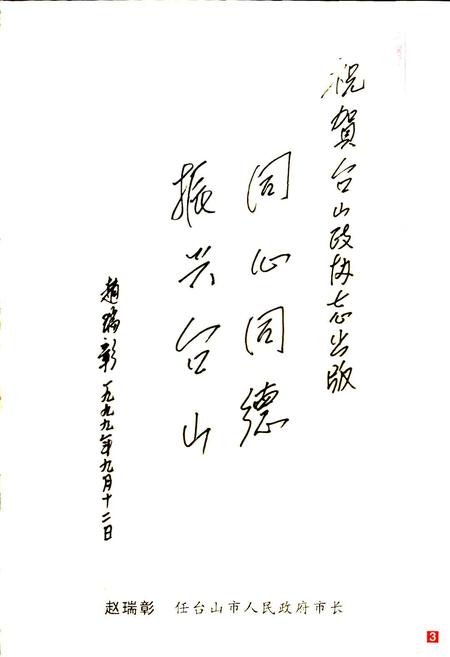 祝賀台山政协志出版
同心同德
振兴台山
趙瑞彰 一九九九年九月十二日
赵瑞彰 任台山市人民政府市长
3